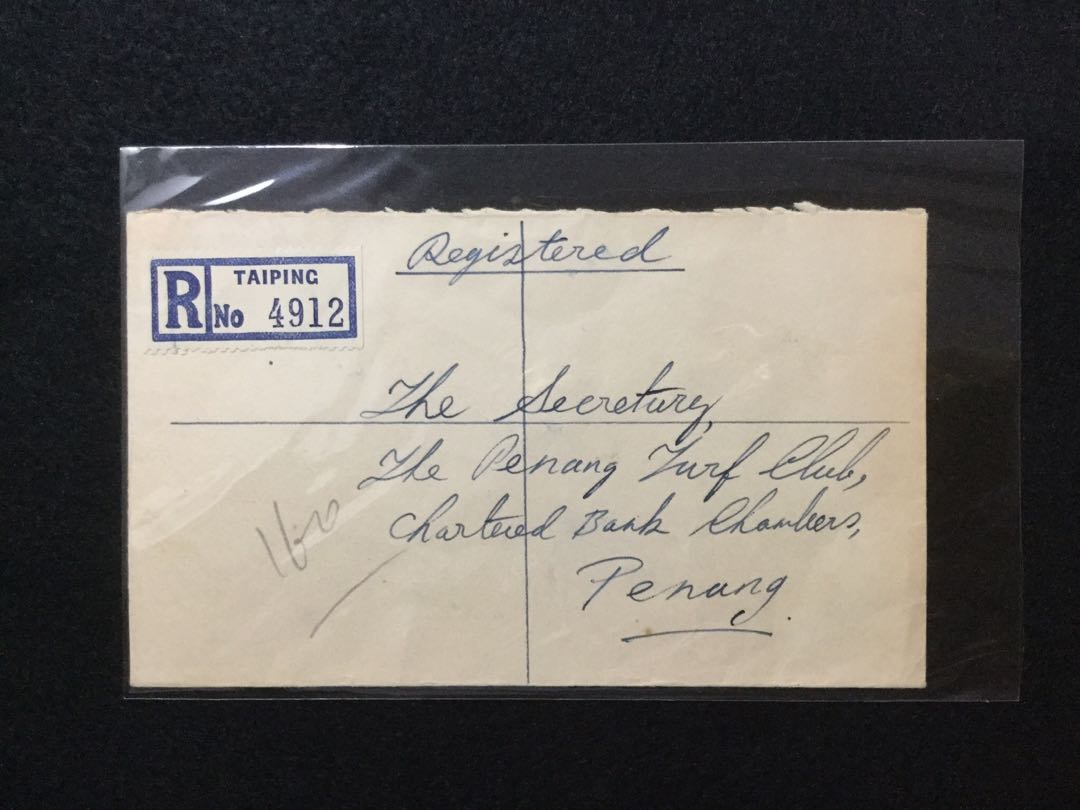 Registered
R
TAIPING
No 4912
The Secretary,
The Penang Turf Club,
Chartered Bank Chambers,
Penang.